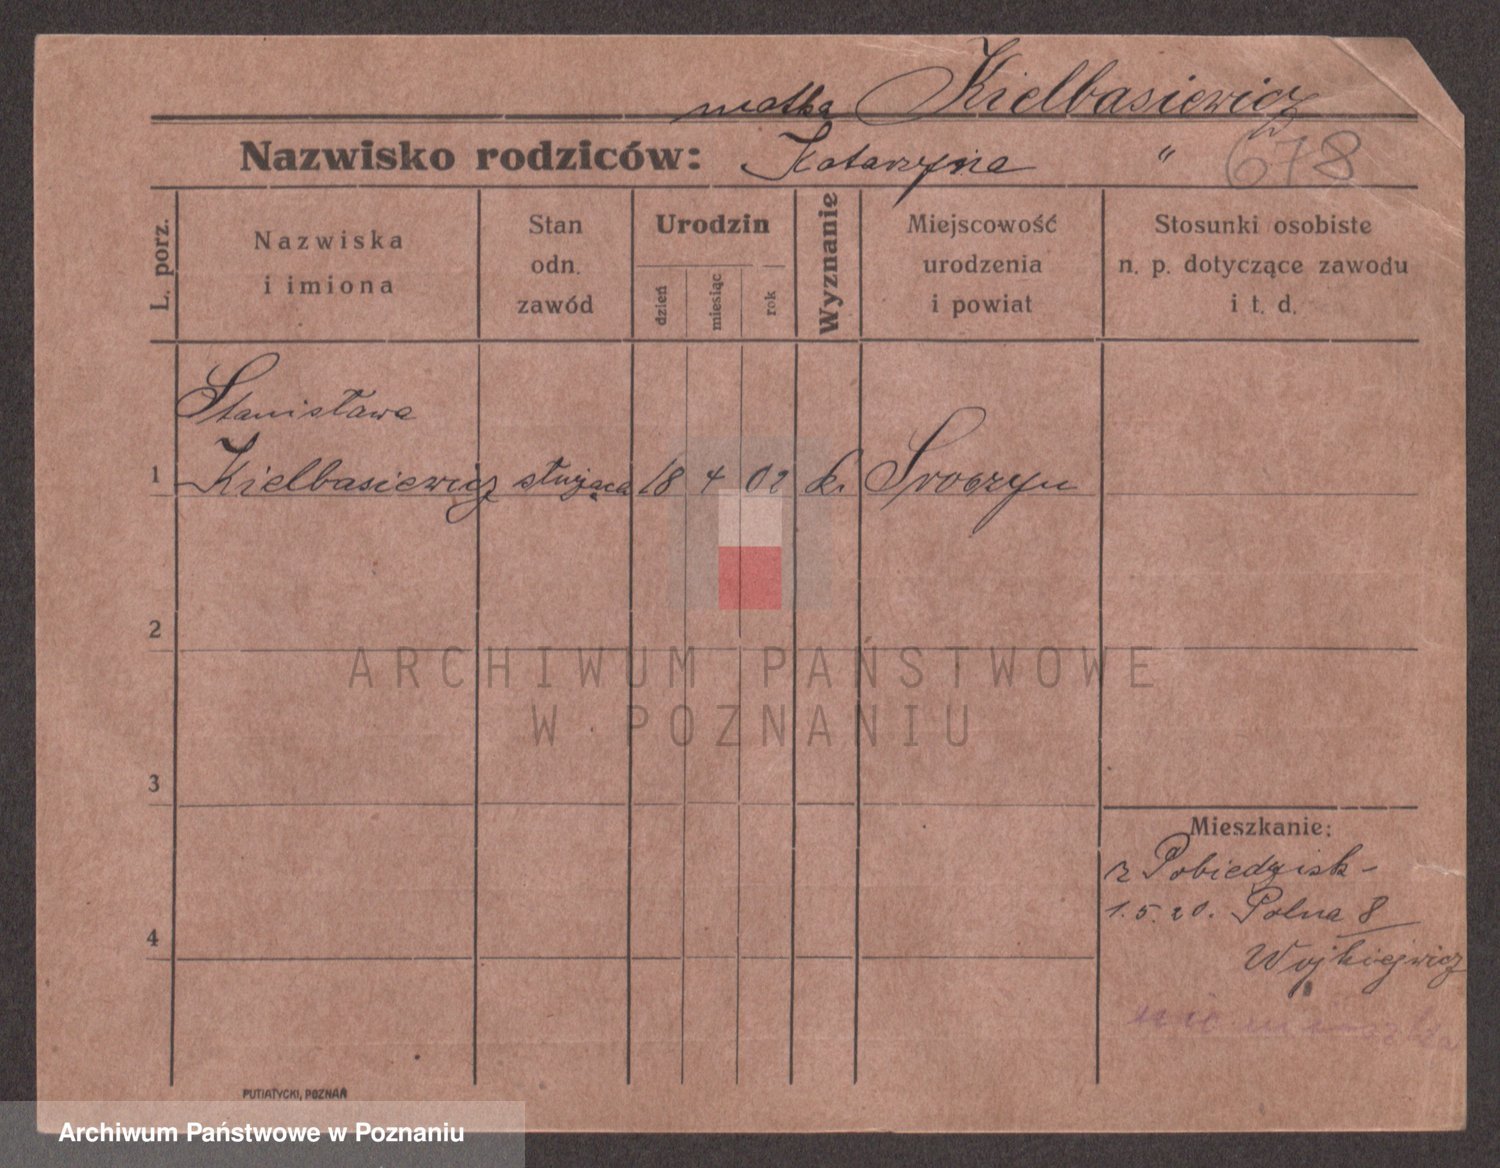 matka Kielbasiewicz
Nazwisko rodziców: Katarzyna "
678
L. porz.
Nazwiska
i imiona
Stan
odn.
zawód
Urodzin
dzień
miesiąc
rok
Wyznanie
Miejscowość
urodzenia
i powiat
Stosunki osobiste
n. p. dotyczące zawodu
i t. d.
Stanisława
1 Kielbasiewicz służąca 18 4 02 k. Sroczyn
2
ARCHIWUM PAŃSTWOWE
W POZNANIU
3
Mieszkanie:
z Pobiedzisk-
1.5.20. Polna 8
4
Wojkiejwicz
nie mieszka
PUTIATYCKI, POZNAŃ
Archiwum Państwowe w Poznaniu